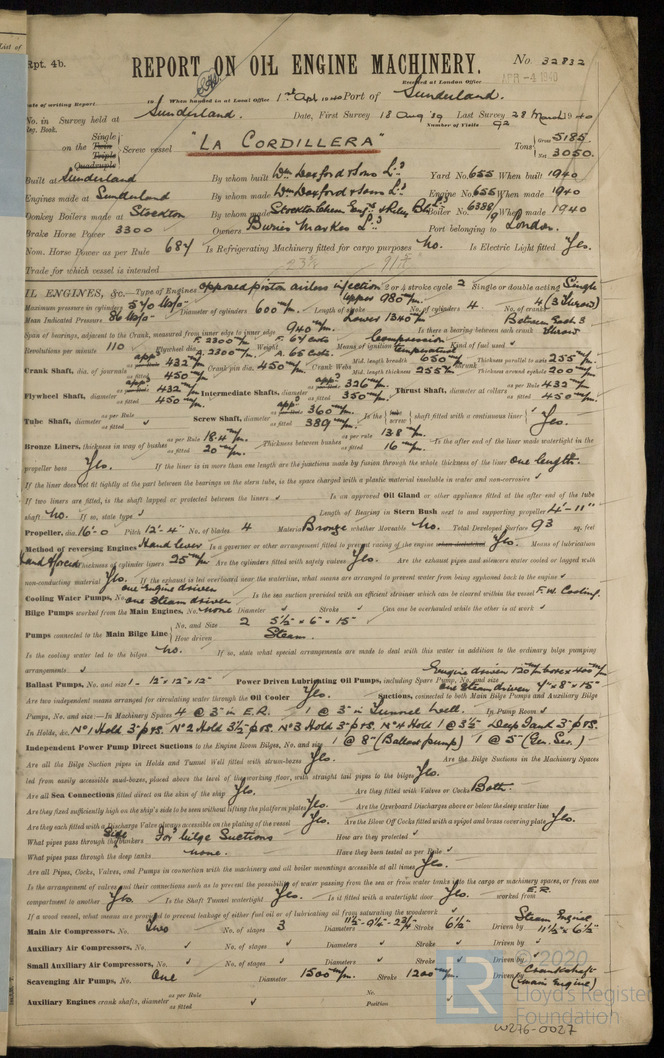 List of
Rpt. 4b.
REPORT ON OIL ENGINE MACHINERY.
No. 32832
Received at London Office
APR -4 1940
Date of writing Report 19 When handed in at Local Office 1st Apl 1940 Port of Sunderland.
No. in Survey held at Sunderland. Date, First Survey 18 Aug '39 Last Survey 28 March 1940
Reg. Book. Number of Visits 92
on the Single Twin Triple Quadruple Screw vessel "LA CORDILLERA" Tons Gross 5185. Net 3050.
Built at Sunderland By whom built Wm Doxford & Sons Ld. Yard No. 655 When built 1940
Engines made at Sunderland By whom made Wm Doxford & Sons Ld. Engine No. 655 When made 1940
Donkey Boilers made at Stockton By whom made Boiler No. 6388 When made 1940
Brake Horse Power 3300 Owners Buries Markes Ld. Port belonging to London.
Nom. Horse Power as per Rule 687 Is Refrigerating Machinery fitted for cargo purposes No. Is Electric Light fitted Yes.
Trade for which vessel is intended
OIL ENGINES, &c. Type of Engines opposed piston airless injection 2 or 4 stroke cycle 2 Single or double acting Single
Maximum pressure in cylinders 570 Diameter of cylinders 600 m/m. Length of stroke Upper 980 m/m. Lower 1340 m/m No. of cylinders 4 No. of cranks 4 (3 Throw)
Mean Indicated Pressure 86
Span of bearings, adjacent to the Crank, measured from inner edge to inner edge 940 m/m. Is there a bearing between each crank Between Each 3 Throws
Revolutions per minute 110 Flywheel dia. F. 2300 m/m A. 2300 m/m. Weight F. 64 cwts A. 65 cwts. Means of ignition Compression Kind of fuel used
Crank Shaft, dia. of journals as fitted 432 m/m 450 m/m Crank pin dia. 450 m/m. Crank Webs Mid. length breadth 650 m/m Mid. length thickness 255 m/m Thickness parallel to axis 255 m/m Thickness around eyehole 200 m/m
Flywheel Shaft, diameter 432 m/m as fitted 450 m/m. Intermediate Shafts, diameter 326 m/m. as fitted 350 m/m. Thrust Shaft, diameter at collars as per Rule 432 m/m as fitted 450 m/m.
Tube Shaft, diameter as per Rule as fitted Screw Shaft, diameter 360 m/m. as fitted 389 m/m. Is the tube screw shaft fitted with a continuous liner Yes.
Bronze Liners, thickness in way of bushes as per Rule 18.4 m/m. as fitted 20 m/m. Thickness between bushes as per rule 13.8 m/m. as fitted 16 m/m. Is the after end of the liner made watertight in the
propeller boss Yes. If the liner is in more than one length are the junctions made by fusion through the whole thickness of the liner one length.
If the liner does not fit tightly at the part between the bearings in the stern tube, is the space charged with a plastic material insoluble in water and non-corrosive
If two liners are fitted, is the shaft lapped or protected between the liners Is an approved Oil Gland or other appliance fitted at the after end of the tube
shaft No. If so, state type Length of Bearing in Stern Bush next to and supporting propeller 4'-11"
Propeller, dia. 16'-0 Pitch 12'-4" No. of blades 4 Material Bronze whether Moveable No. Total Developed Surface 93 sq. feet
Method of reversing Engines Hand lever Is a governor or other arrangement fitted to prevent racing of the engine when declutched Yes. Means of lubrication
Hand & forced Thickness of cylinder liners 25 m/m. Are the cylinders fitted with safety valves Yes. Are the exhaust pipes and silencers water cooled or lagged with
non-conducting material Yes. If the exhaust is led overboard near the waterline, what means are arranged to prevent water from being syphoned back to the engine
Cooling Water Pumps, No. one Engine driven one Steam driven Is the sea suction provided with an efficient strainer which can be cleared within the vessel F.W. Cooling.
Bilge Pumps worked from the Main Engines, No. None Diameter Stroke Can one be overhauled while the other is at work
Pumps connected to the Main Bilge Line No. and Size 2 5½" x 6" x 15" How driven Steam.
Is the cooling water led to the bilges No. If so, state what special arrangements are made to deal with this water in addition to the ordinary bilge pumping
arrangements
Ballast Pumps, No. and size 1 - 12" x 12" x 12" Power Driven Lubricating Oil Pumps, including Spare Pump, No. and size Engine driven 120 m/m bore x 400 m/m one Steam driven 7" x 8" x 15"
Are two independent means arranged for circulating water through the Oil Cooler Yes. Suctions, connected to both Main Bilge Pumps and Auxiliary Bilge
Pumps, No. and size:—In Machinery Spaces 4 @ 3" in E.R. 1 @ 3" in Tunnel Well. In Pump Room
In Holds, &c. No 1 Hold 3" P&S. No 2 Hold 3½" P&S. No 3 Hold 3" P&S. No 4 Hold 1 @ 3½" Deep Tank 3" P&S.
Independent Power Pump Direct Suctions to the Engine Room Bilges, No. and size 1 @ 8" (Ballast pump) 1 @ 5" (Gen. Ser.)
Are all the Bilge Suction pipes in Holds and Tunnel Well fitted with strum-boxes Yes. Are the Bilge Suctions in the Machinery Spaces
led from easily accessible mud-boxes, placed above the level of the working floor, with straight tail pipes to the bilges Yes.
Are all Sea Connections fitted direct on the skin of the ship Yes. Are they fitted with Valves or Cocks Both.
Are they fixed sufficiently high on the ship's side to be seen without lifting the platform plates Yes. Are the Overboard Discharges above or below the deep water line
Are they each fitted with a Discharge Valve always accessible on the plating of the vessel Yes. Are the Blow Off Cocks fitted with a spigot and brass covering plate Yes.
What pipes pass through the bunkers Side For'd bilge Suctions How are they protected
What pipes pass through the deep tanks None. Have they been tested as per Rule
Are all Pipes, Cocks, Valves, and Pumps in connection with the machinery and all boiler mountings accessible at all times Yes.
Is the arrangement of valves and their connections such as to prevent the possibility of water passing from the sea or from water tanks into the cargo or machinery spaces, or from one
compartment to another Yes. Is the Shaft Tunnel watertight Yes. Is it fitted with a watertight door Yes. worked from E.R.
If a wood vessel, what means are provided to prevent leakage of either fuel oil or of lubricating oil from saturating the woodwork
Main Air Compressors, No. Two No. of stages 3 Diameters 11½" - 9½" - 2¾" Stroke 6½" Driven by Steam Engine 11½" x 6½"
Auxiliary Air Compressors, No. No. of stages Diameters Stroke Driven by
Small Auxiliary Air Compressors, No. No. of stages Diameters Stroke Driven by
Scavenging Air Pumps, No. One Diameter 1500 m/m. Stroke 1200 m/m. Driven by Crankshaft (main Engine)
Auxiliary Engines crank shafts, diameter as per Rule as fitted No. Position
LR © 2020 Lloyd's Register Foundation
W276-0027